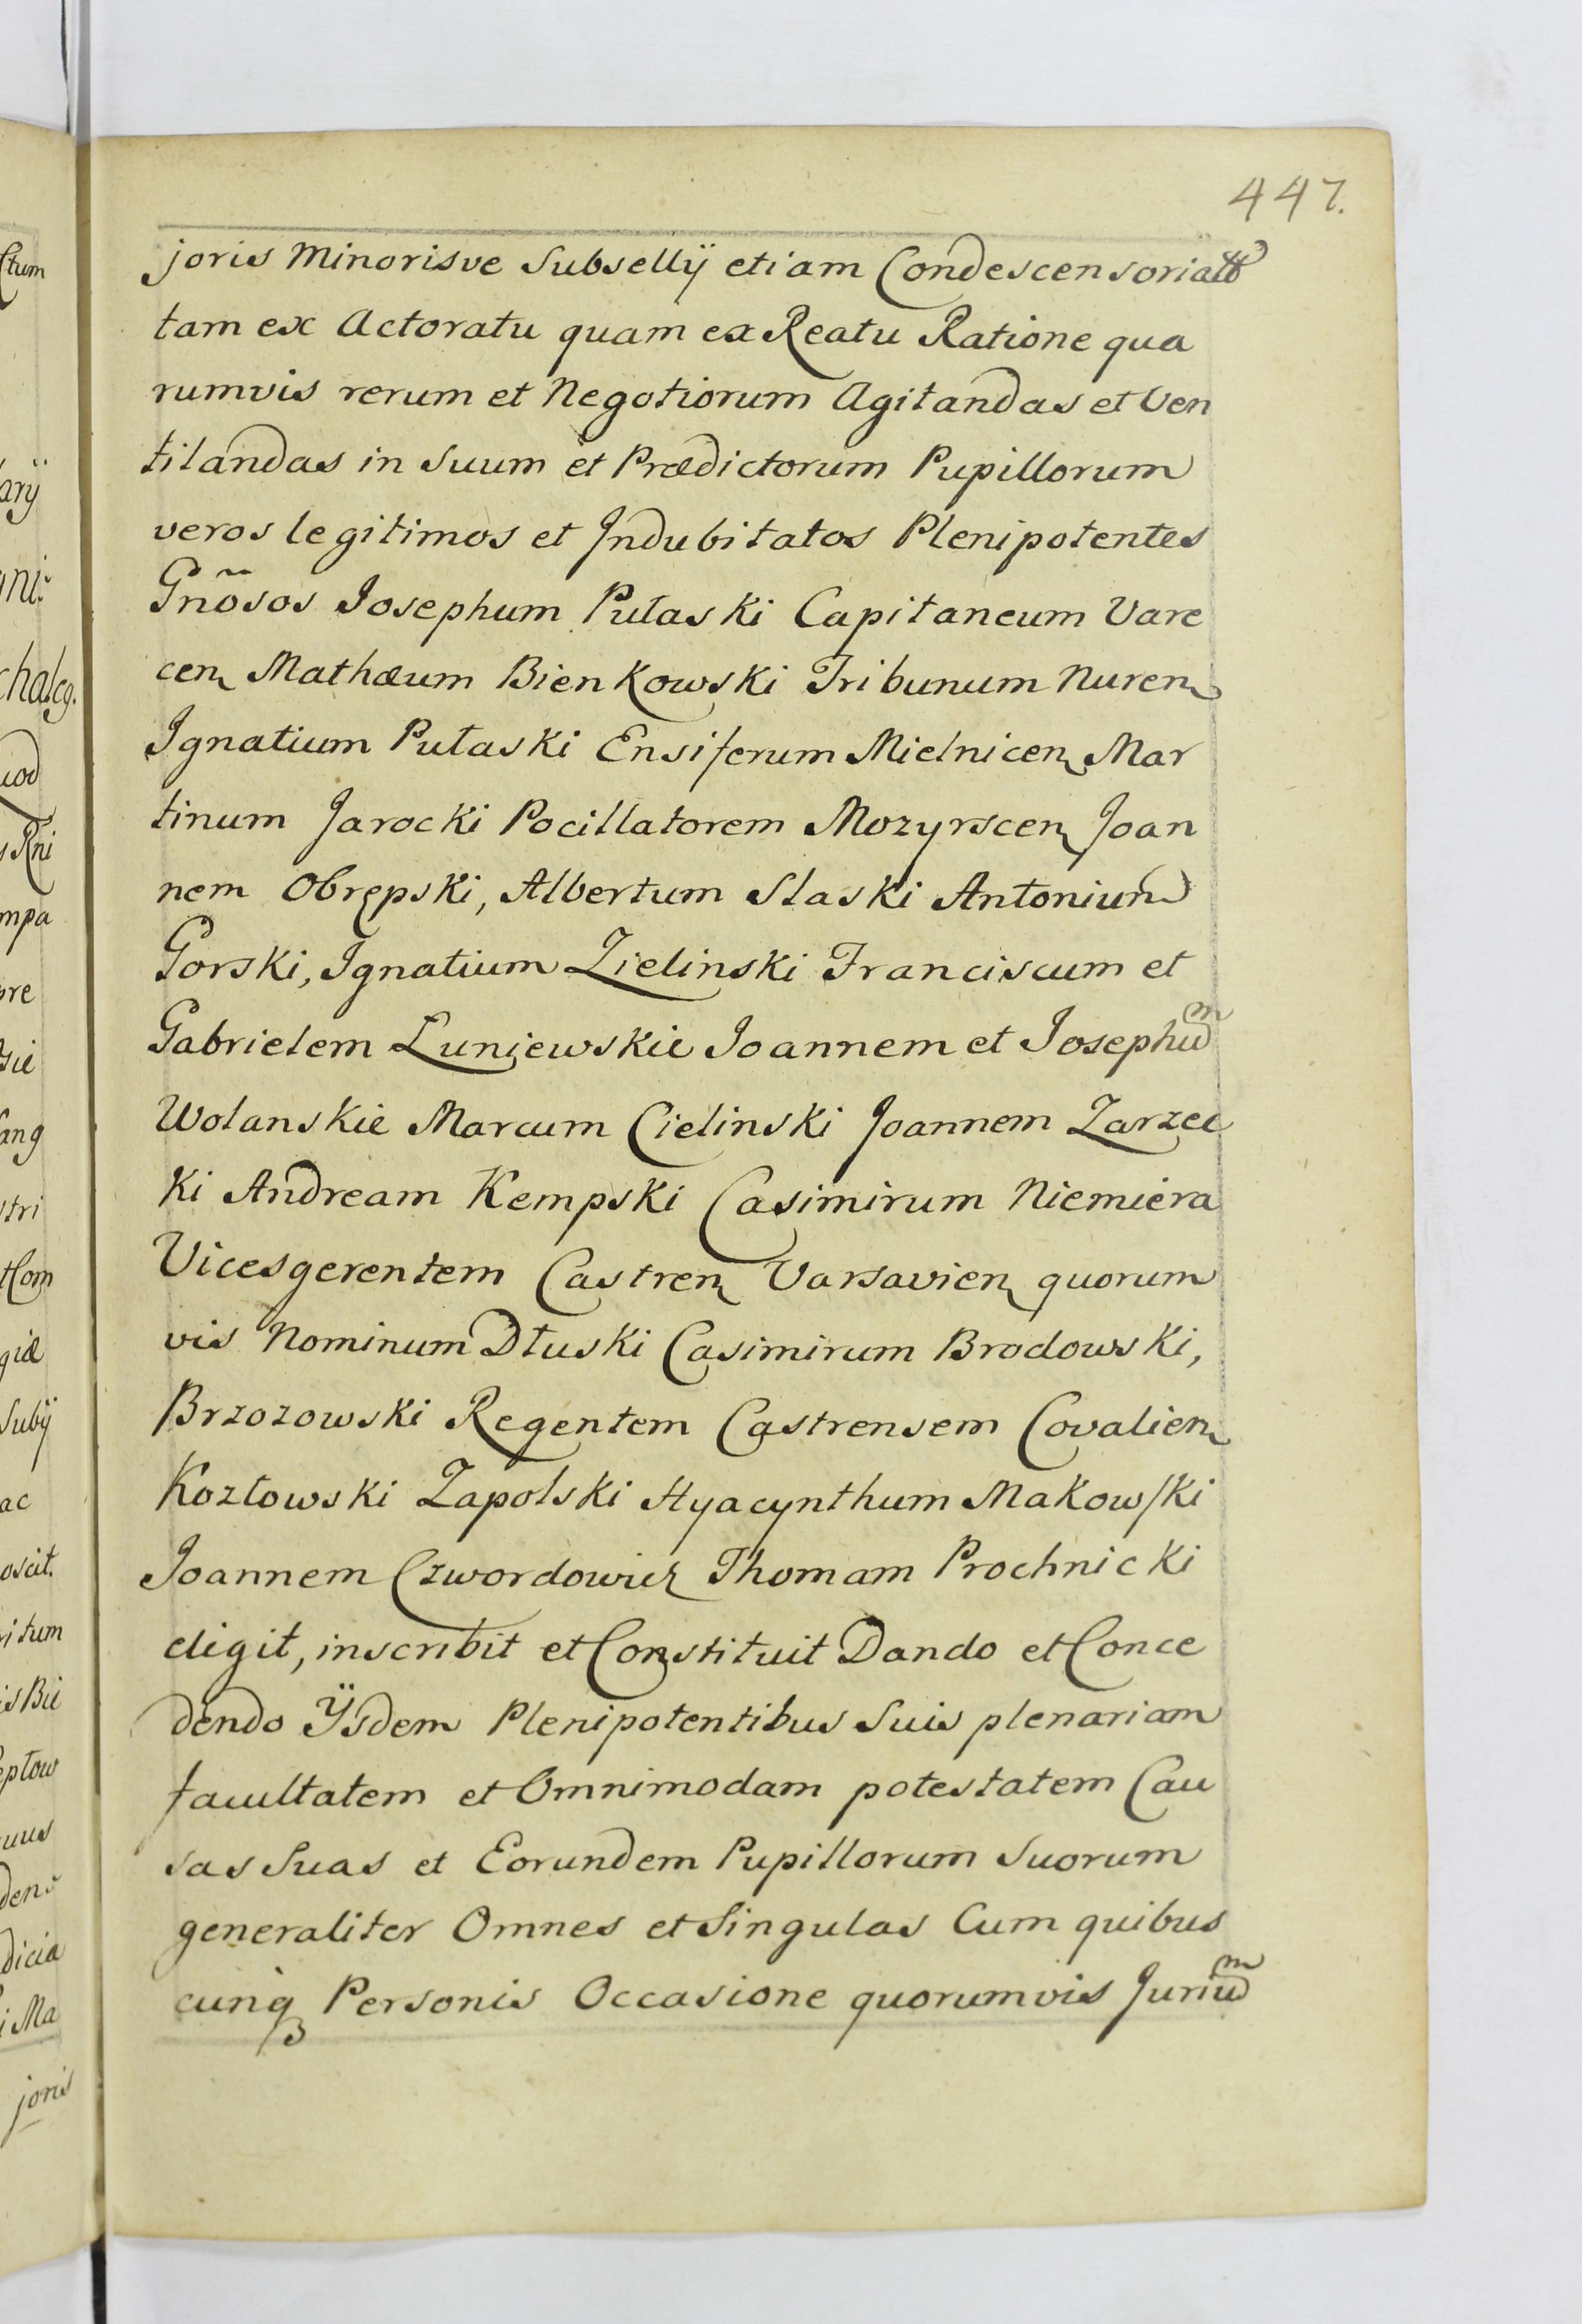 447.
joris Minorisve Subsellÿ etiam Condescensoria
tam ex Actoratu quam ex Reatu Ratione qua
rumvis rerum et Negotiorum Agitandas et Ven
tilandas in Suum et Prædictorum Pupillorum
veros legitimos et Indubitatos Plenipotentes
Gnõsos Josephum Pułaski Capitaneum Vare
cen Mathæum Bienkowski Tribunum Nuren
Ignatium Pułaski Ensiferum Mielnicen Mar
tinum Jarocki Pocillatorem Mozyrscen Joan
nem Obrępski, Albertum Slaski Antonium
Gorski, Ignatium Zielinski Franciscum et
Gabrielem Łuniewskie Joannem et Josephum
Wolanskie Marcum Cielinski Joannem Zarzec
ki Andream Kempski Casimirum Niemiera
Vicesgerentem Castren Varsavien quorum
vis Nominum Dłuski Casimirum Brodowski,
Brzozowski Regentem Castrensem Covalien
Kozłowski Zapolski Hyacynthum Makowski
Joannem Czwordowicz Thomam Prochnicki
eligit, inscribit et Constituit Dando et Conce
dendo Ÿsdem Plenipotentibus Suis plenariam
facultatem et Omnimodam potestatem Cau
sas Suas et Eorundem Pupillorum Suorum
generaliter Omnes et Singulas Cum quibus
cunq Personis Occasione quorumvis Jurium